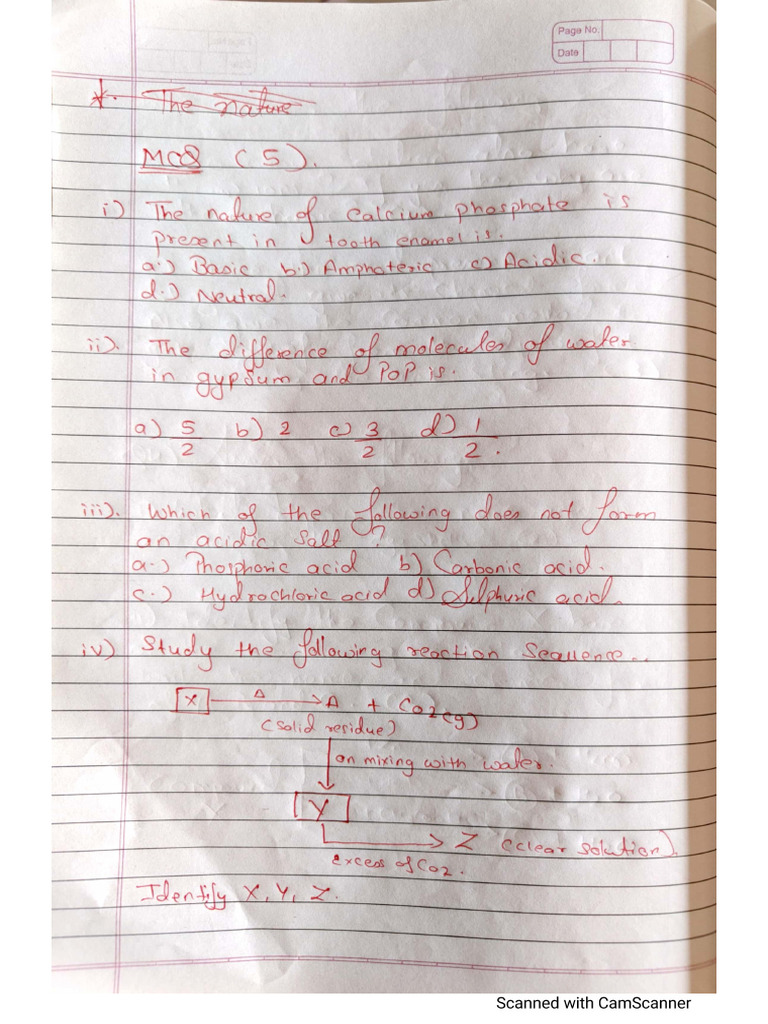 Page No.
Date
*. The nature
MCQ (5).
i) The nature of calcium phosphate is
present in tooth enamel is.
a.) Basic b.) Amphateric c) Acidic.
d.) Neutral.
ii). The difference of molecules of water
in gypsum and POP is.
a) 5/2 b) 2 c) 3/2 d) 1/2.
iii). Which of the following does not form
an acidic salt?
a.) Phosphoric acid b) Carbonic acid.
c.) Hydrochloric acid d) Sulphuric acid.
iv) Study the following reaction Sequence..
X Δ A + CO2(g)
(solid residue)
on mixing with water.
Y
Z (clear solution).
excess of CO2.
Identify X, Y, Z.
Scanned with CamScanner